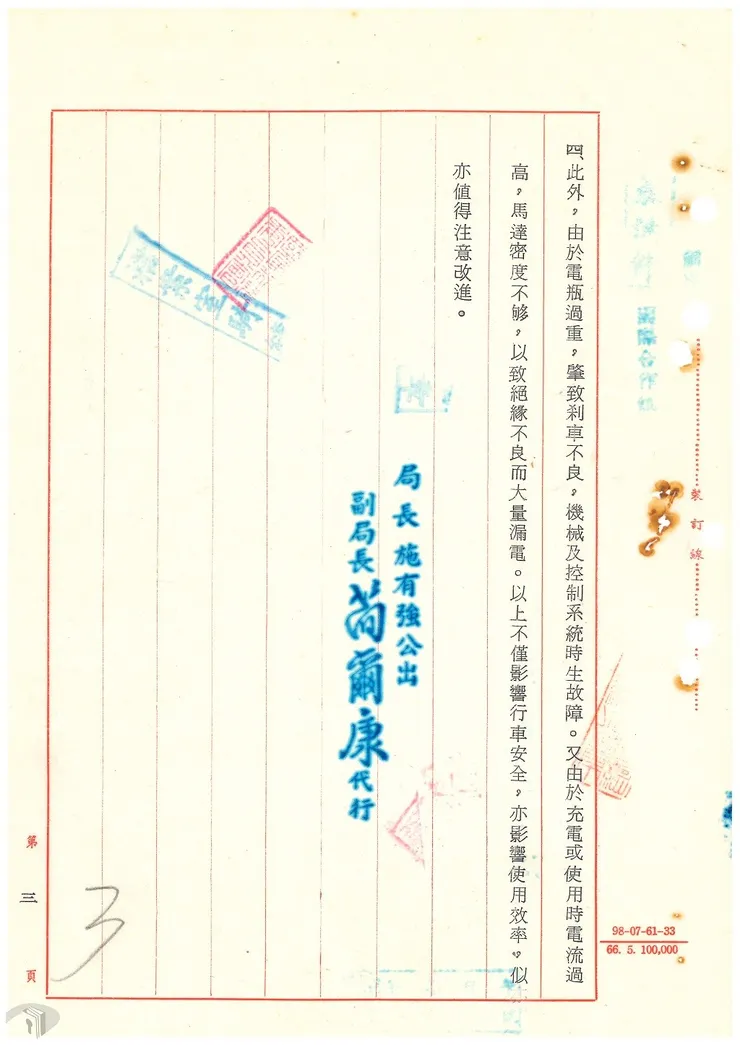 四、此外，由於電瓶過重，肇致剎車不良，機械及控制系統時生故障。又由於充電或使用時電流過
高，馬達密度不够，以致絕緣不良而大量漏電。以上不僅影響行車安全，亦影響使用效率。似
亦值得注意改進。
局長施有強公出
副局長萬爾康代行
裝訂線
98-07-61-33
66. 5. 100,000
第三頁
3